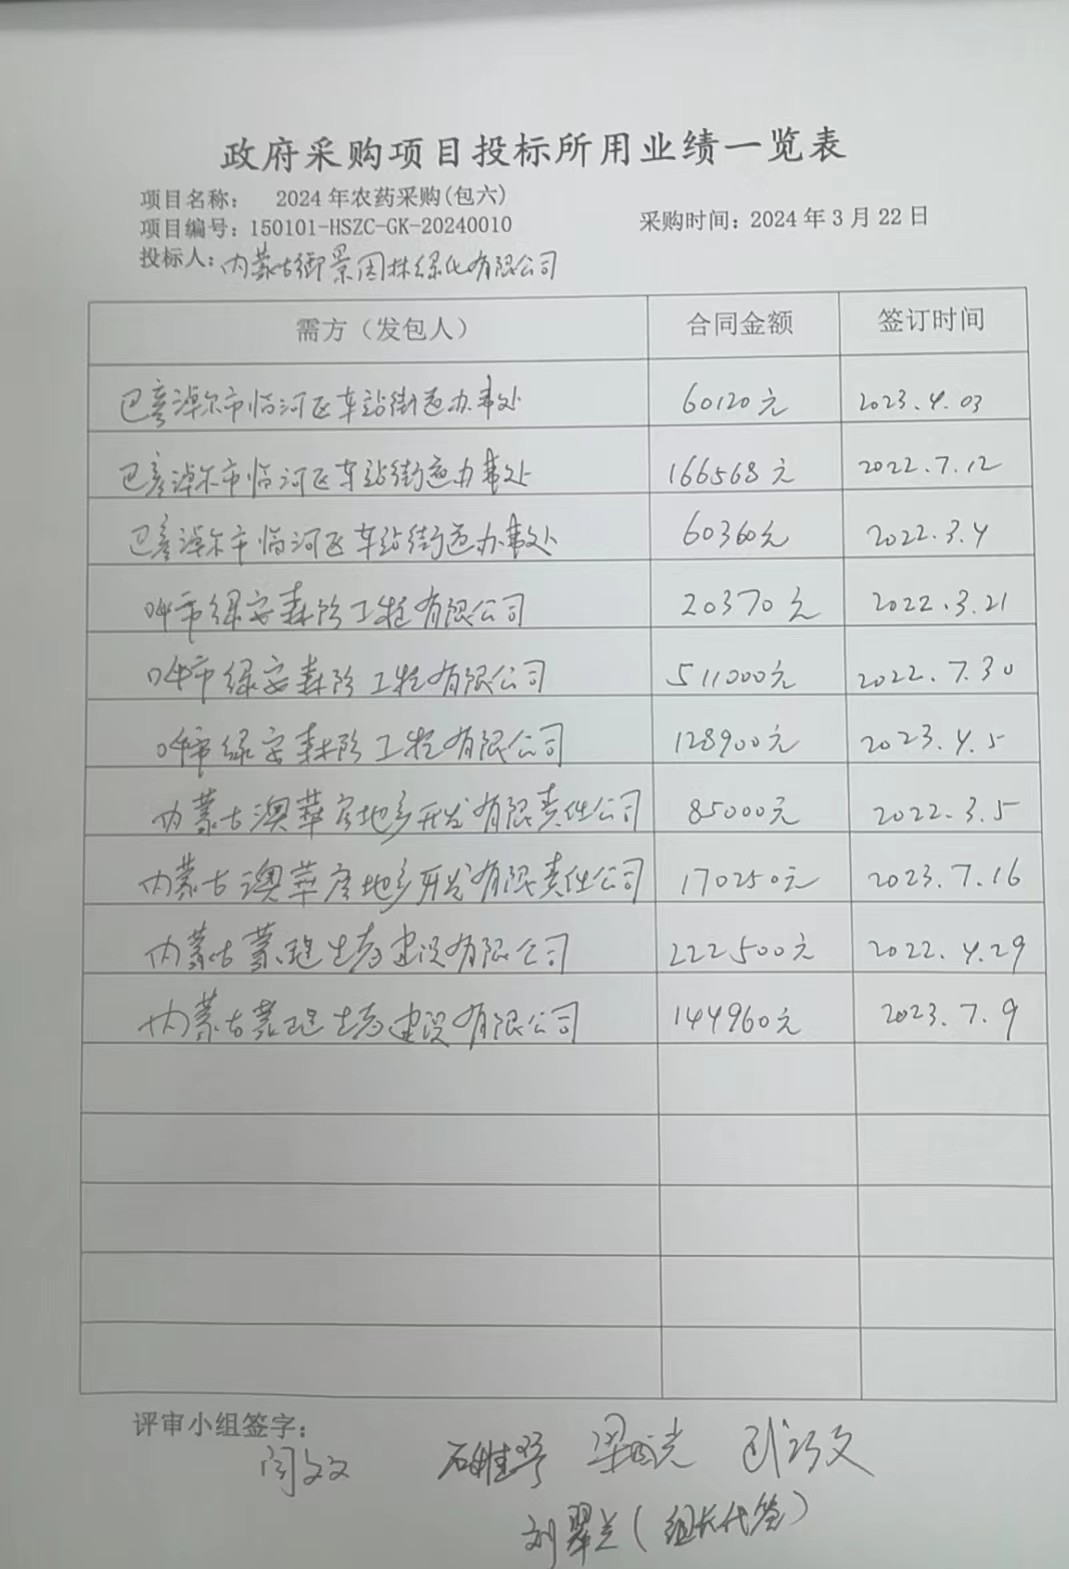 政府采购项目投标所用业绩一览表
项目名称： 2024年农药采购(包六)
项目编号：150101-HSZC-GK-20240010 采购时间：2024年3月22日
投标人：内蒙古御景园林绿化有限公司
需方（发包人） 合同金额 签订时间
巴彦淖尔市临河区车站街道办事处 60120元 2023.4.03
巴彦淖尔市临河区车站街道办事处 166568元 2022.7.12
巴彦淖尔市临河区车站街道办事处 60360元 2022.3.4
呼市绿安森防工程有限公司 20370元 2022.3.21
呼市绿安森防工程有限公司 511000元 2022.7.30
呼市绿安森防工程有限公司 128900元 2023.4.5
内蒙古澳华房地产开发有限责任公司 85000元 2022.3.5
内蒙古澳华房地产开发有限责任公司 170250元 2023.7.16
内蒙古蒙琨生态建设有限公司 222500元 2022.4.29
内蒙古蒙琨生态建设有限公司 144960元 2023.7.9
评审小组签字：
闫文文
刘翠兰（组长代签）